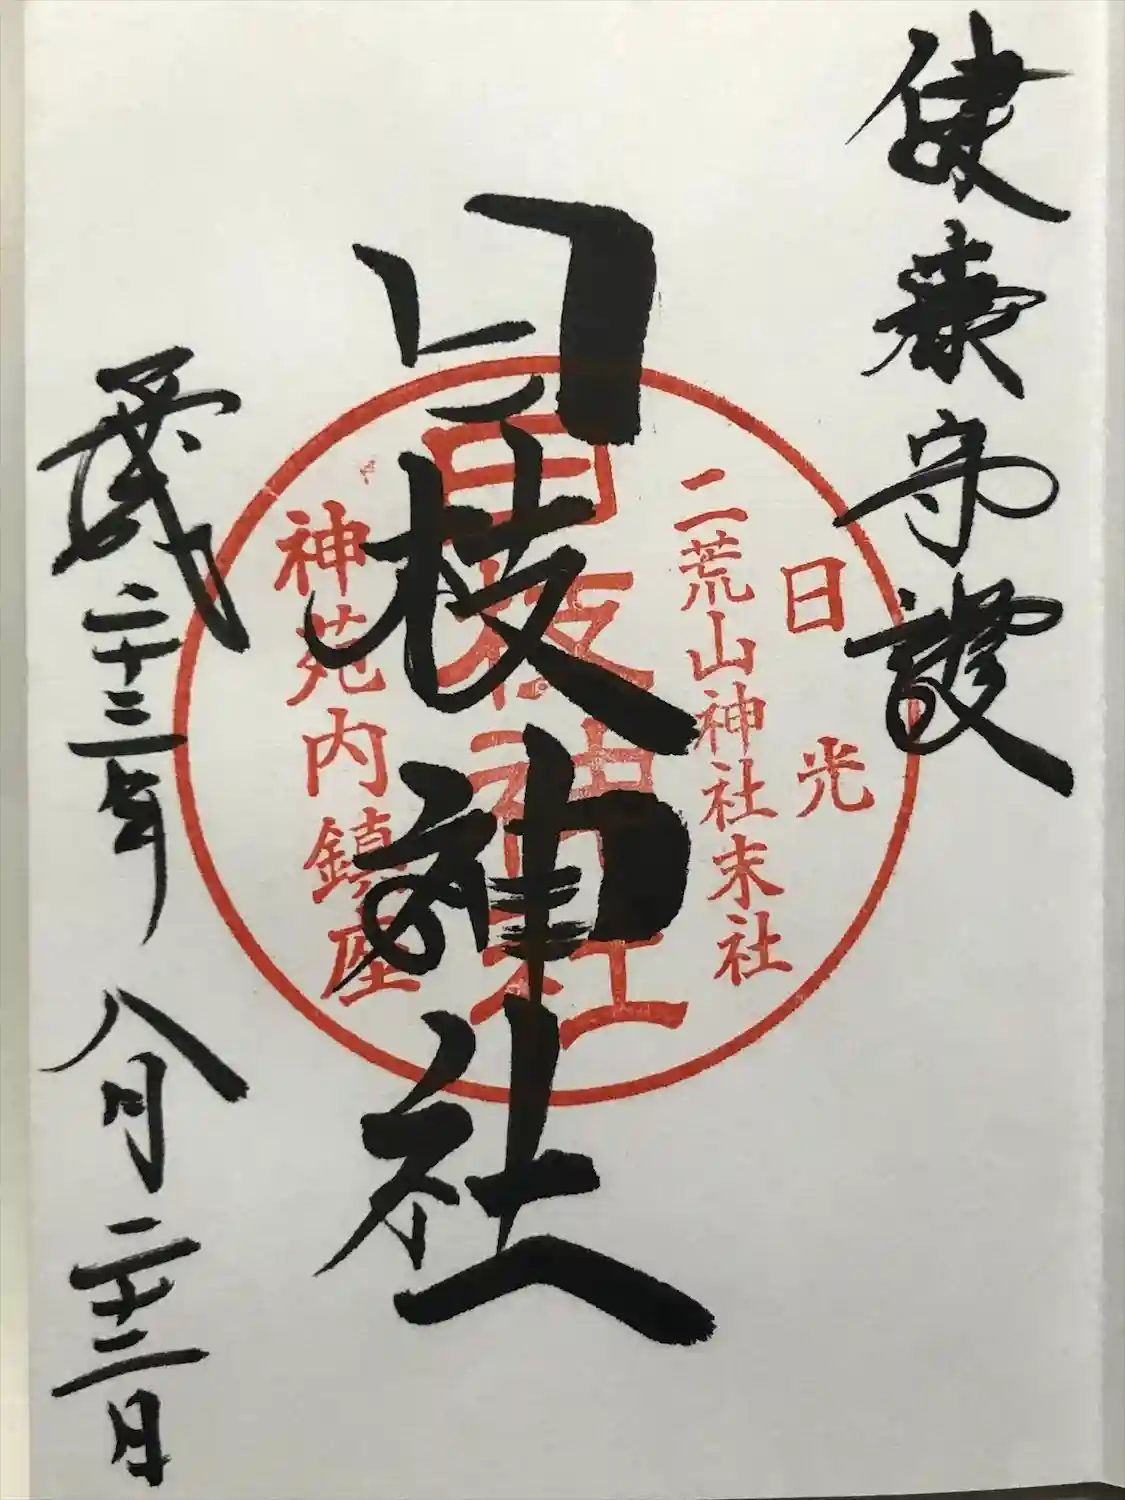 健康守護
日光
二荒山神社末社
日枝神社
日枝神社
神苑内鎮座
平成二十三年八月二十二日